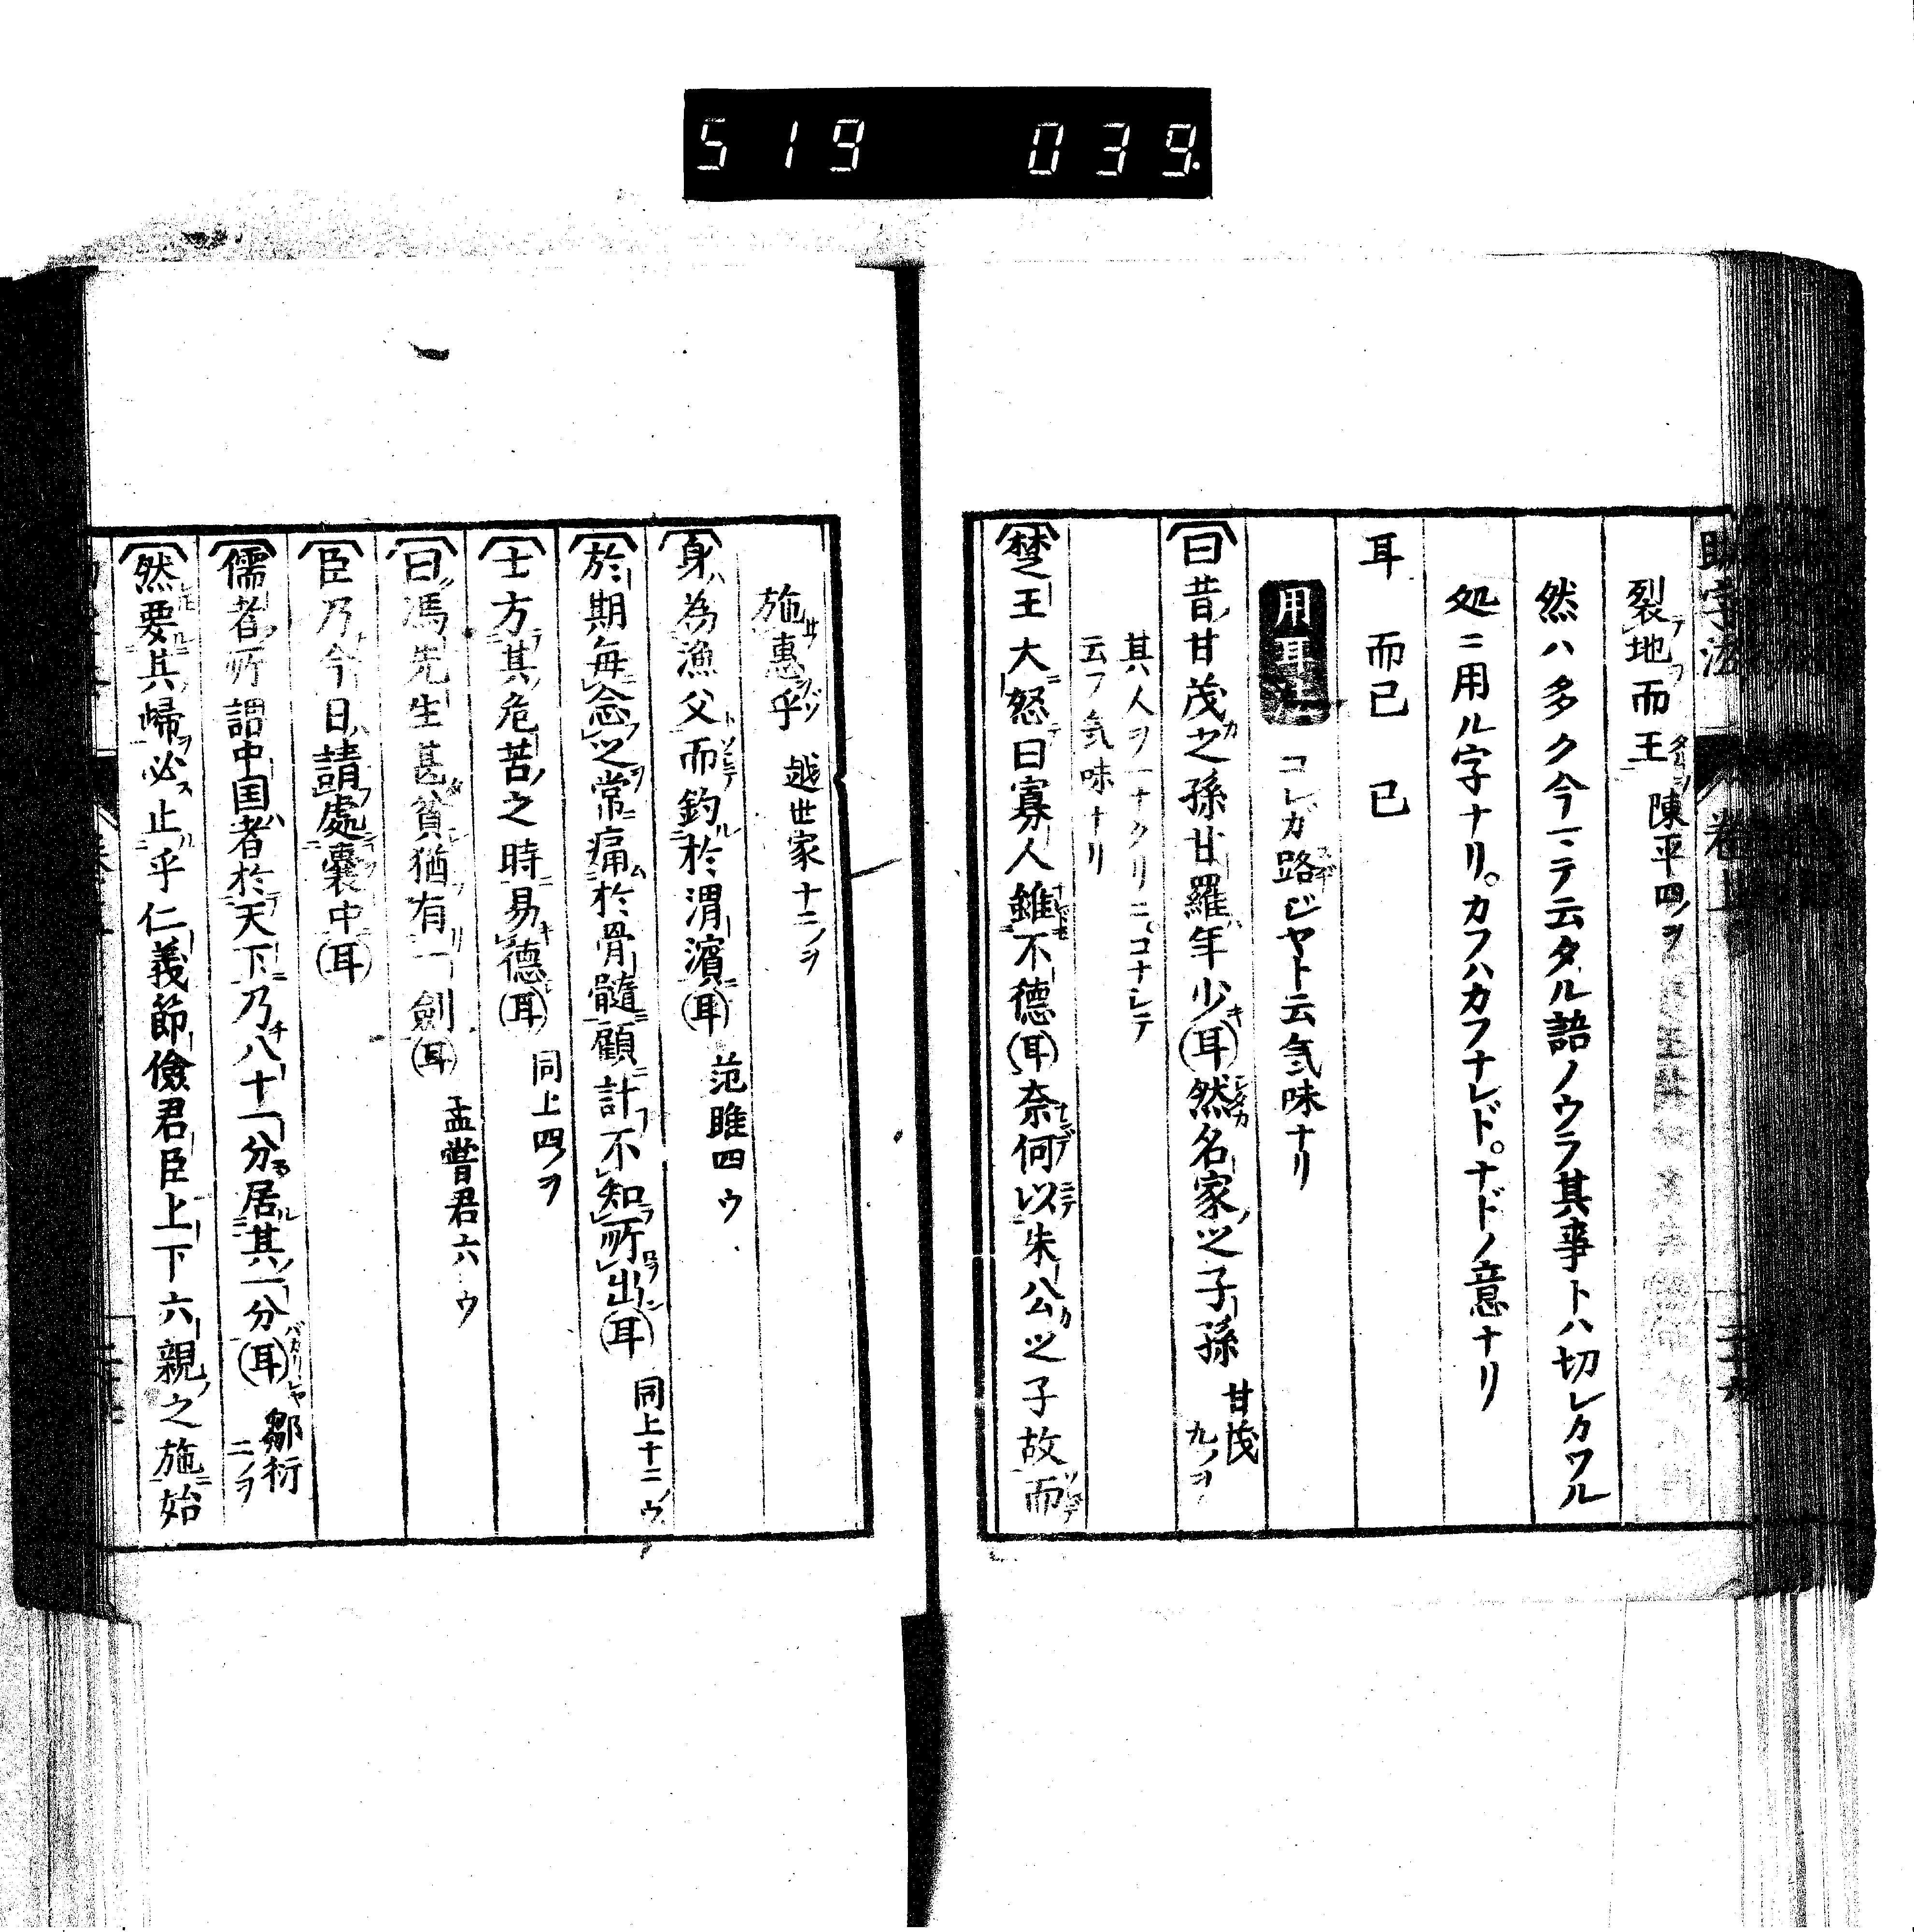 519 039.
助字法 卷上
裂地而王 陳平四ノヲ
然ハ多ク今一ヽテ云タル語ノウラ其事トハ切レカワル
処ニ用ル字ナリ。カフハカフナレド。ナドノ意ナリ
耳 而已 已
用耳 コレガ路ジヤト云気味ナリ
曰昔甘茂之孫甘羅年少耳然名家之子孫 甘茂九ノヲ
其人ヲ一ナクリニ。コナレテ
云フ気味ナリ
楚王大怒曰寡人雖不徳耳奈何以朱公之子故而
施惠乎 越世家十二ノヲ
身為漁父而釣於渭濱耳 范雎四ウ
於期毎念之常痛於骨髓顧計不知所出耳 同上十二ノウ
士方其危苦之時易德耳 同上四ノヲ
曰馮先生甚貧猶有一劍耳 孟嘗君六ウ
臣乃今日請處囊中耳
儒者所謂中国者於天下乃八十一分居其一分耳 鄒衍二ノヲ
然要其帰必止乎仁義節儉君臣上下六親之施始